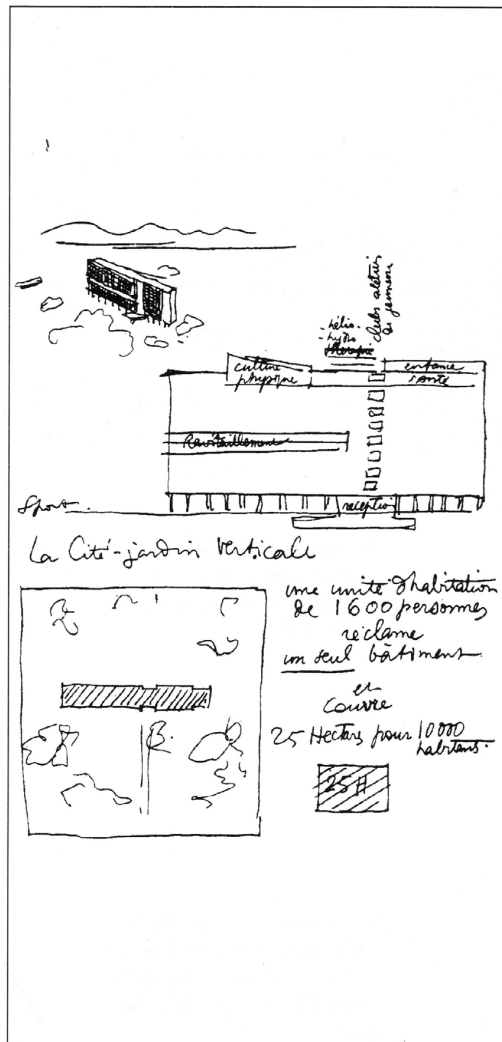 -hélio-
-hydro
thérapie
clubs ateliers
des jeunes
culture
physique
enfance
santé
Ravitaillement
Sport.
reception
La Cité-jardin Verticale
une unité d'habitation
de 1600 personnes
réclame
un seul bâtiment
et
couvre
B.
25 Hectars pour 10 000
habitants.
25 H